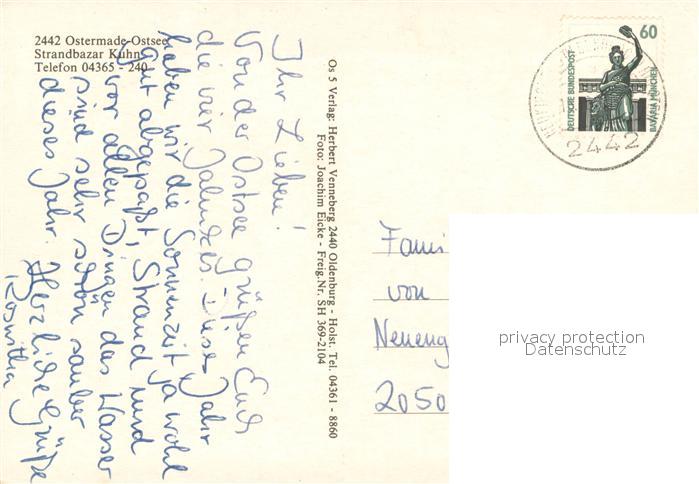 2442 Ostermade-Ostsee
Strandbazar Kuhn
Telefon 04365 - 240
Ihr Lieben!
Von der Ostsee grüßen Euch
die vier Dieses Jahr
haben wir die Sonnenzeit ja wohl
gut abgepaßt, Strand und
vor allen Dingen das Wasser
sind sehr schön sauber
dieses Jahr. Herzliche Grüße
Roswitha
Os 5 Verlag: Herbert Venneberg 2440 Oldenburg - Holst. Tel. 04361 - 8860
Foto: Joachim Eicke - Freig.Nr. SH 369-2104
60
DEUTSCHE BUNDESPOST
BAVARIA MÜNCHEN
2442
Fami
von
Neueng
2050
privacy protection
Datenschutz